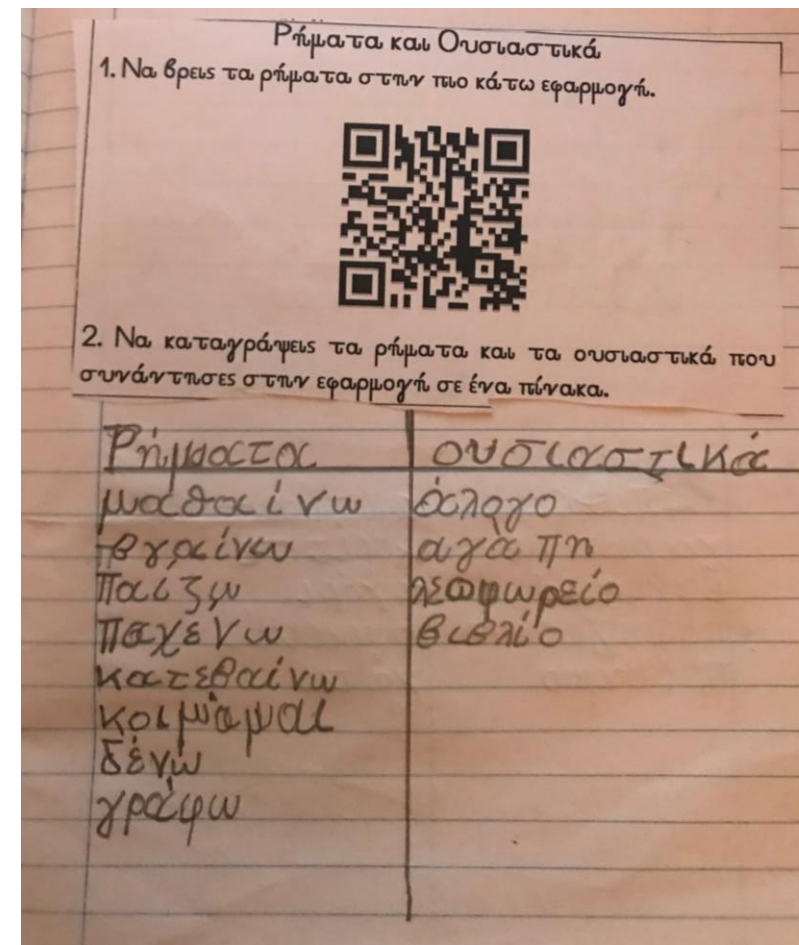 Ρήματα και Ουσιαστικά
1. Να βρεις τα ρήματα στην πιο κάτω εφαρμογή.
2. Να καταγράψεις τα ρήματα και τα ουσιαστικά που
συνάντησες στην εφαρμογή σε ένα πίνακα.
Ρήματα ουσιαστικά
μαθαίνω άλογο
βγαίνω αγάπη
παίζω λεωφωρείο
παχενω βιβλίο
κατεβαίνω
κοιμάμαι
δένω
γράφω